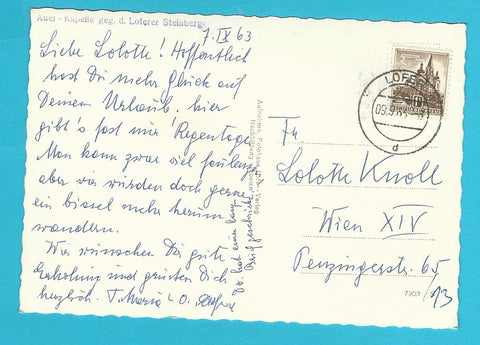 Auer - Kapelle geg. d. Loferer Steinberge
7. IX 63
Liebe Lolotte! Hoffentlich
hast Du mehr Glück auf
Deinem Urlaub. hier
gibt's fast nur Regentage
Man kann zwar viel faulenzen
aber wir würden doch gerne
ein bissel mehr herum
wandern.
Wir wünschen Dir gute
Erholung und grüßen Dich
herzlich. T. Maria + O.
Du hast einen lang
Brief geschrieben
LOFER
09.9.63
d
Fr.
Lolotte Knoll
Wien XIV
Penzingerstr. 65/
13
7903